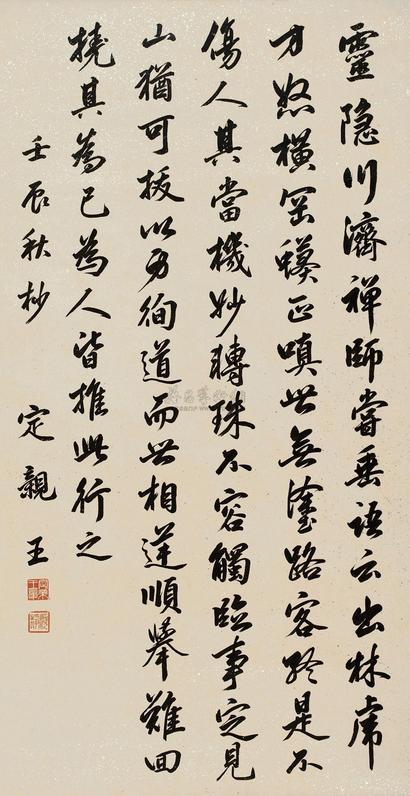 靈隐川濟禪師嘗垂語云出林虎
方怒橫罜蠎正嗔此無潼路客終是不
傷人其當機妙轉珠不容觸臨事定見
山猶可援以身徇道而世相逆順舉難回
撓其為己為人皆推此行之
壬辰秋杪
定親王